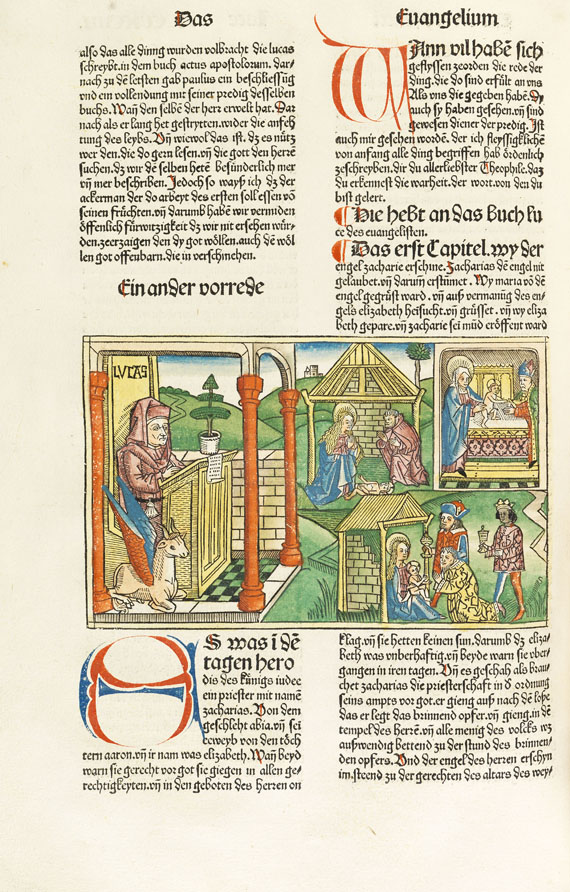 Das
Euangelium
also das alle dinng wurden volbracht die lucas
schreybt. in dem buch actus apostolorum. dar-
nach zu dē letsten gab paulus ein beschliessūg
vnd ein vollendung mit seiner predig desselben
buchs. Wañ den selbē der herr erwelt hat. Dar
nach als er lang het gestrytten. wider die anfeh
tung des leybs. Vñ wiewol das ist. dz es nütz
wer den. die do gern lesen. vñ die gott den herrē
suchen. dz wir dē selben hetē besünderlich mer
vñ mer beschriben. Jedoch so wayß ich dz der
ackerman der do arbeyt des ersten soll essen vō
seinen früchten. vñ darumb habē wir vermiden
öffenlich fürwitzigkeit dz wir nit ersehen wür-
den. zeerzaigen den dy got wöllen. auch dē wöl
len got offenbarn. die in verschmehen.
Ein ander vorrede
WAnn vil habē sich
geflyssen zeorden die rede der
ding. die do sind erfült an vns
Als vns die gegeben habē. Dy
auch sy haben gesehen. vñ sind
gewesen diener der predig. Ist
auch mir gesehen wordē. der ich fleyssigklichē
von anfang alle ding begriffen hab ördenlich
zeschreyben. dir du allerliebster Theophile. daz
du erkennest die warheit. der wort. von den du
bist gelert.
Hie hebt an das Buch lu
ce des euangelisten.
Das erst Capitel. wy der
engel zacharie erschine. Zacharias dē engel nit
gelaubet. vñ darum erstūmet. Wy maria vō dē
engel gegrüst ward. vñ auß vermanūg des en-
gels elizabeth heīsucht. vñ grüsset. vñ wy eliza
beth gepare. vñ zacharie sei mūd eröffent ward
LVCAS
ES was ī dē
tagen hero
dis des künigs iudee
ein priester mit namē
zacharias. Von dem
geschleht abia. vñ sei
eeweyb von den töch
tern aaron. vñ ir nam was elizabeth. Wañ beyd
warn sie gerecht vor got sie giegen in allen ge-
rechtigkeyten. vñ in den geboten des herren on
klag. vñ sie hetten keinen sun. darumb dz eliza-
beth was vnberhaftig. vñ beyde warn sie vber-
gangen in iren tagen. Vñ es geschah als brau-
chet zacharias die priesterschaft in d ordnung
seins ampts vor got. er gieng auß nach dē loße
das er legt das brinnend opfer. vñ gieng. in dē
tempel des herrē. vñ alle menig des volcks wz
außwendig bettend zu der stund des brinnen-
den opfers. Vnd der engel des herren erschyn
im. steend zu der gerechten des altars des wey-